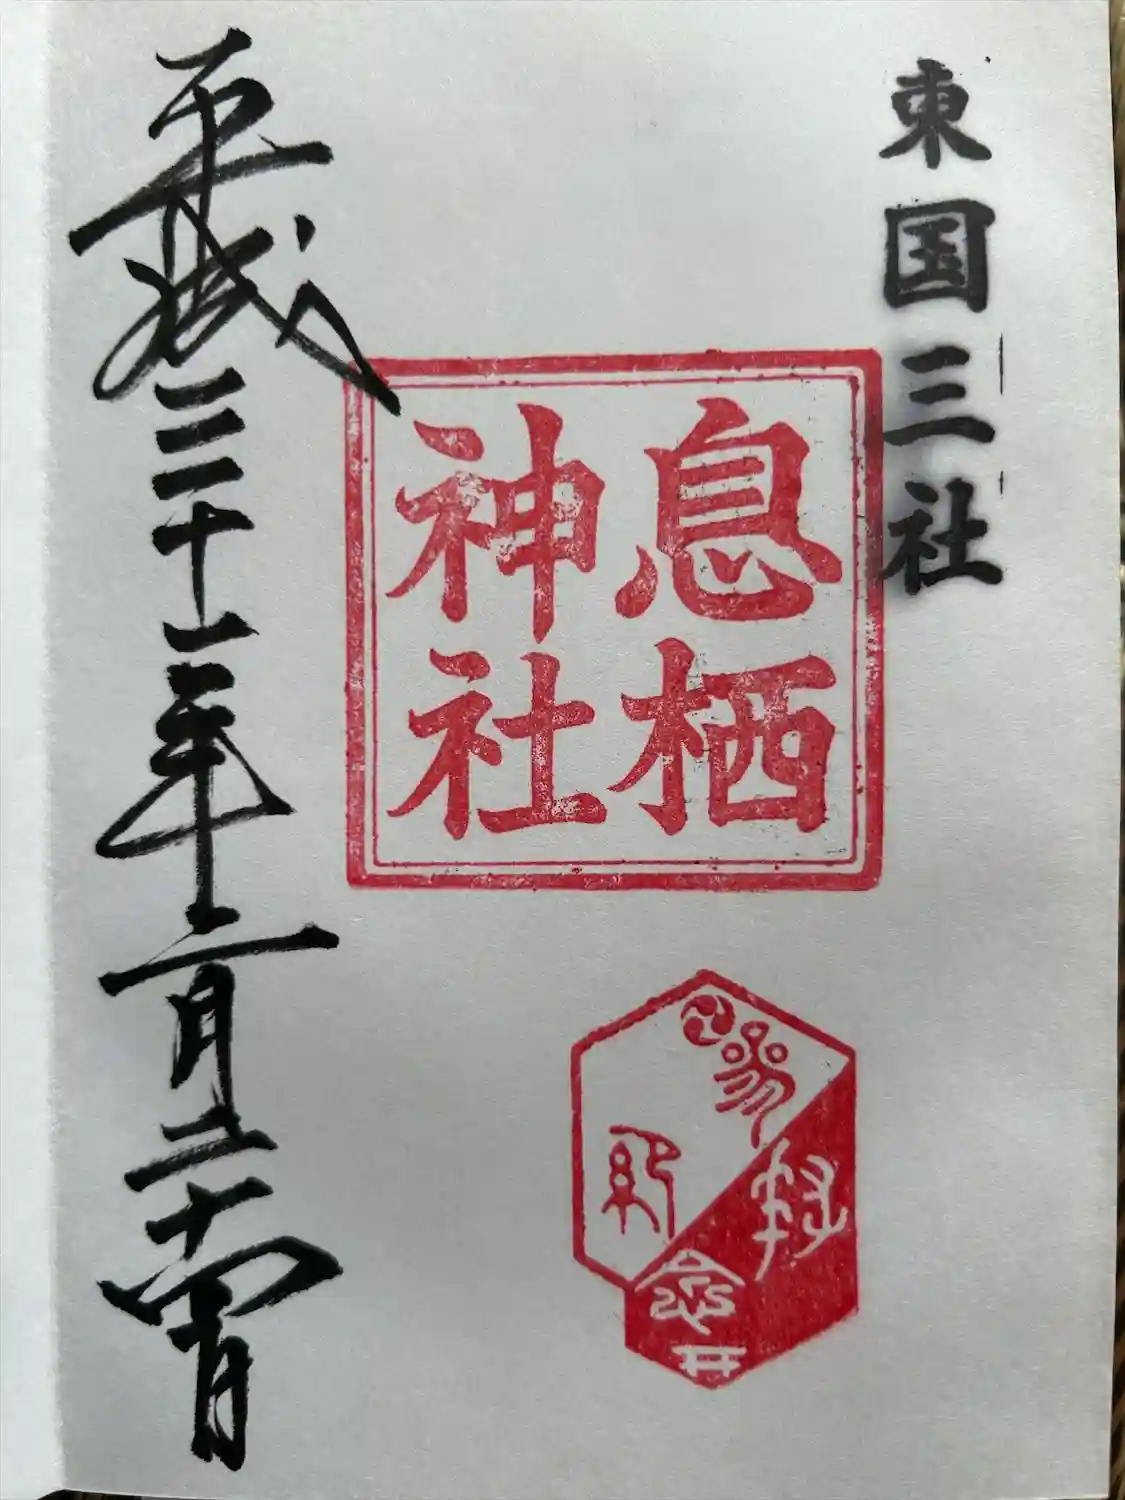 東国三社
息栖
神社
参拝
記念
平成三十一年二月二十六日